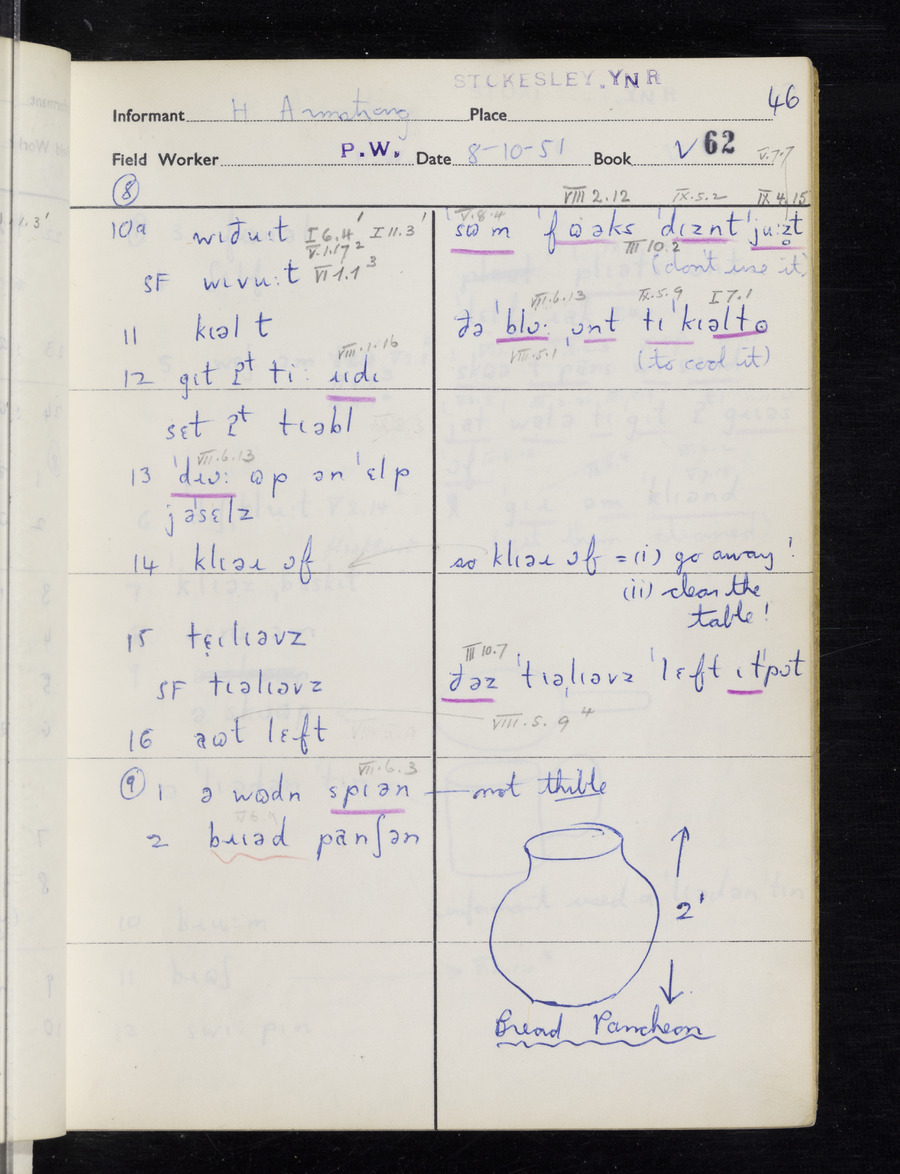 STOKESLEY. YNR
46
Informant H Armstrong Place
Field Worker P.W. Date 8-10-51 Book V 62 V.7.7
⑧ VIII 2.12 IX.5.2 IX 4.15
10a wɪðuːt I 6.4 I 11.3
V.1.17 2
SF wɪvuːt VI 1.1 3
11 kɪəl t
12 gɪt ʔt tiː ɹɪdɪ VIII.1.16
sɛt ʔt tɪəbl
13 'dɪʊː ɷp ən 'ɛlp VII.6.13
jə'sɛlz
14 klɪəɹ ɔf
15 tɛ̣ɪlɪəvz
SF tɪəlɪəvz
16 aɷt lɛft
⑨ 1 ə wɷdn spɪən VII.6.3
2 bɹɪəd panʃən
V.8.4
sɷm 'fɷəks 'dɪznt 'juːz̥t
III 10.2
(don't use it)
VII.6.13 IX.5.9 I 7.1
ðə 'blʊː ˌɒnt tɪ 'kɪəltə
VIII.5.1 (to cool it)
so klɪəɹ ɔf = (i) go away!
(ii) clear the
table!
III 10.7
ðəz 'tɪəˌlɪəvz 'lɛft ɪ t'pɒt
VIII.5.9 4
not thible
2'
Bread Pancheon